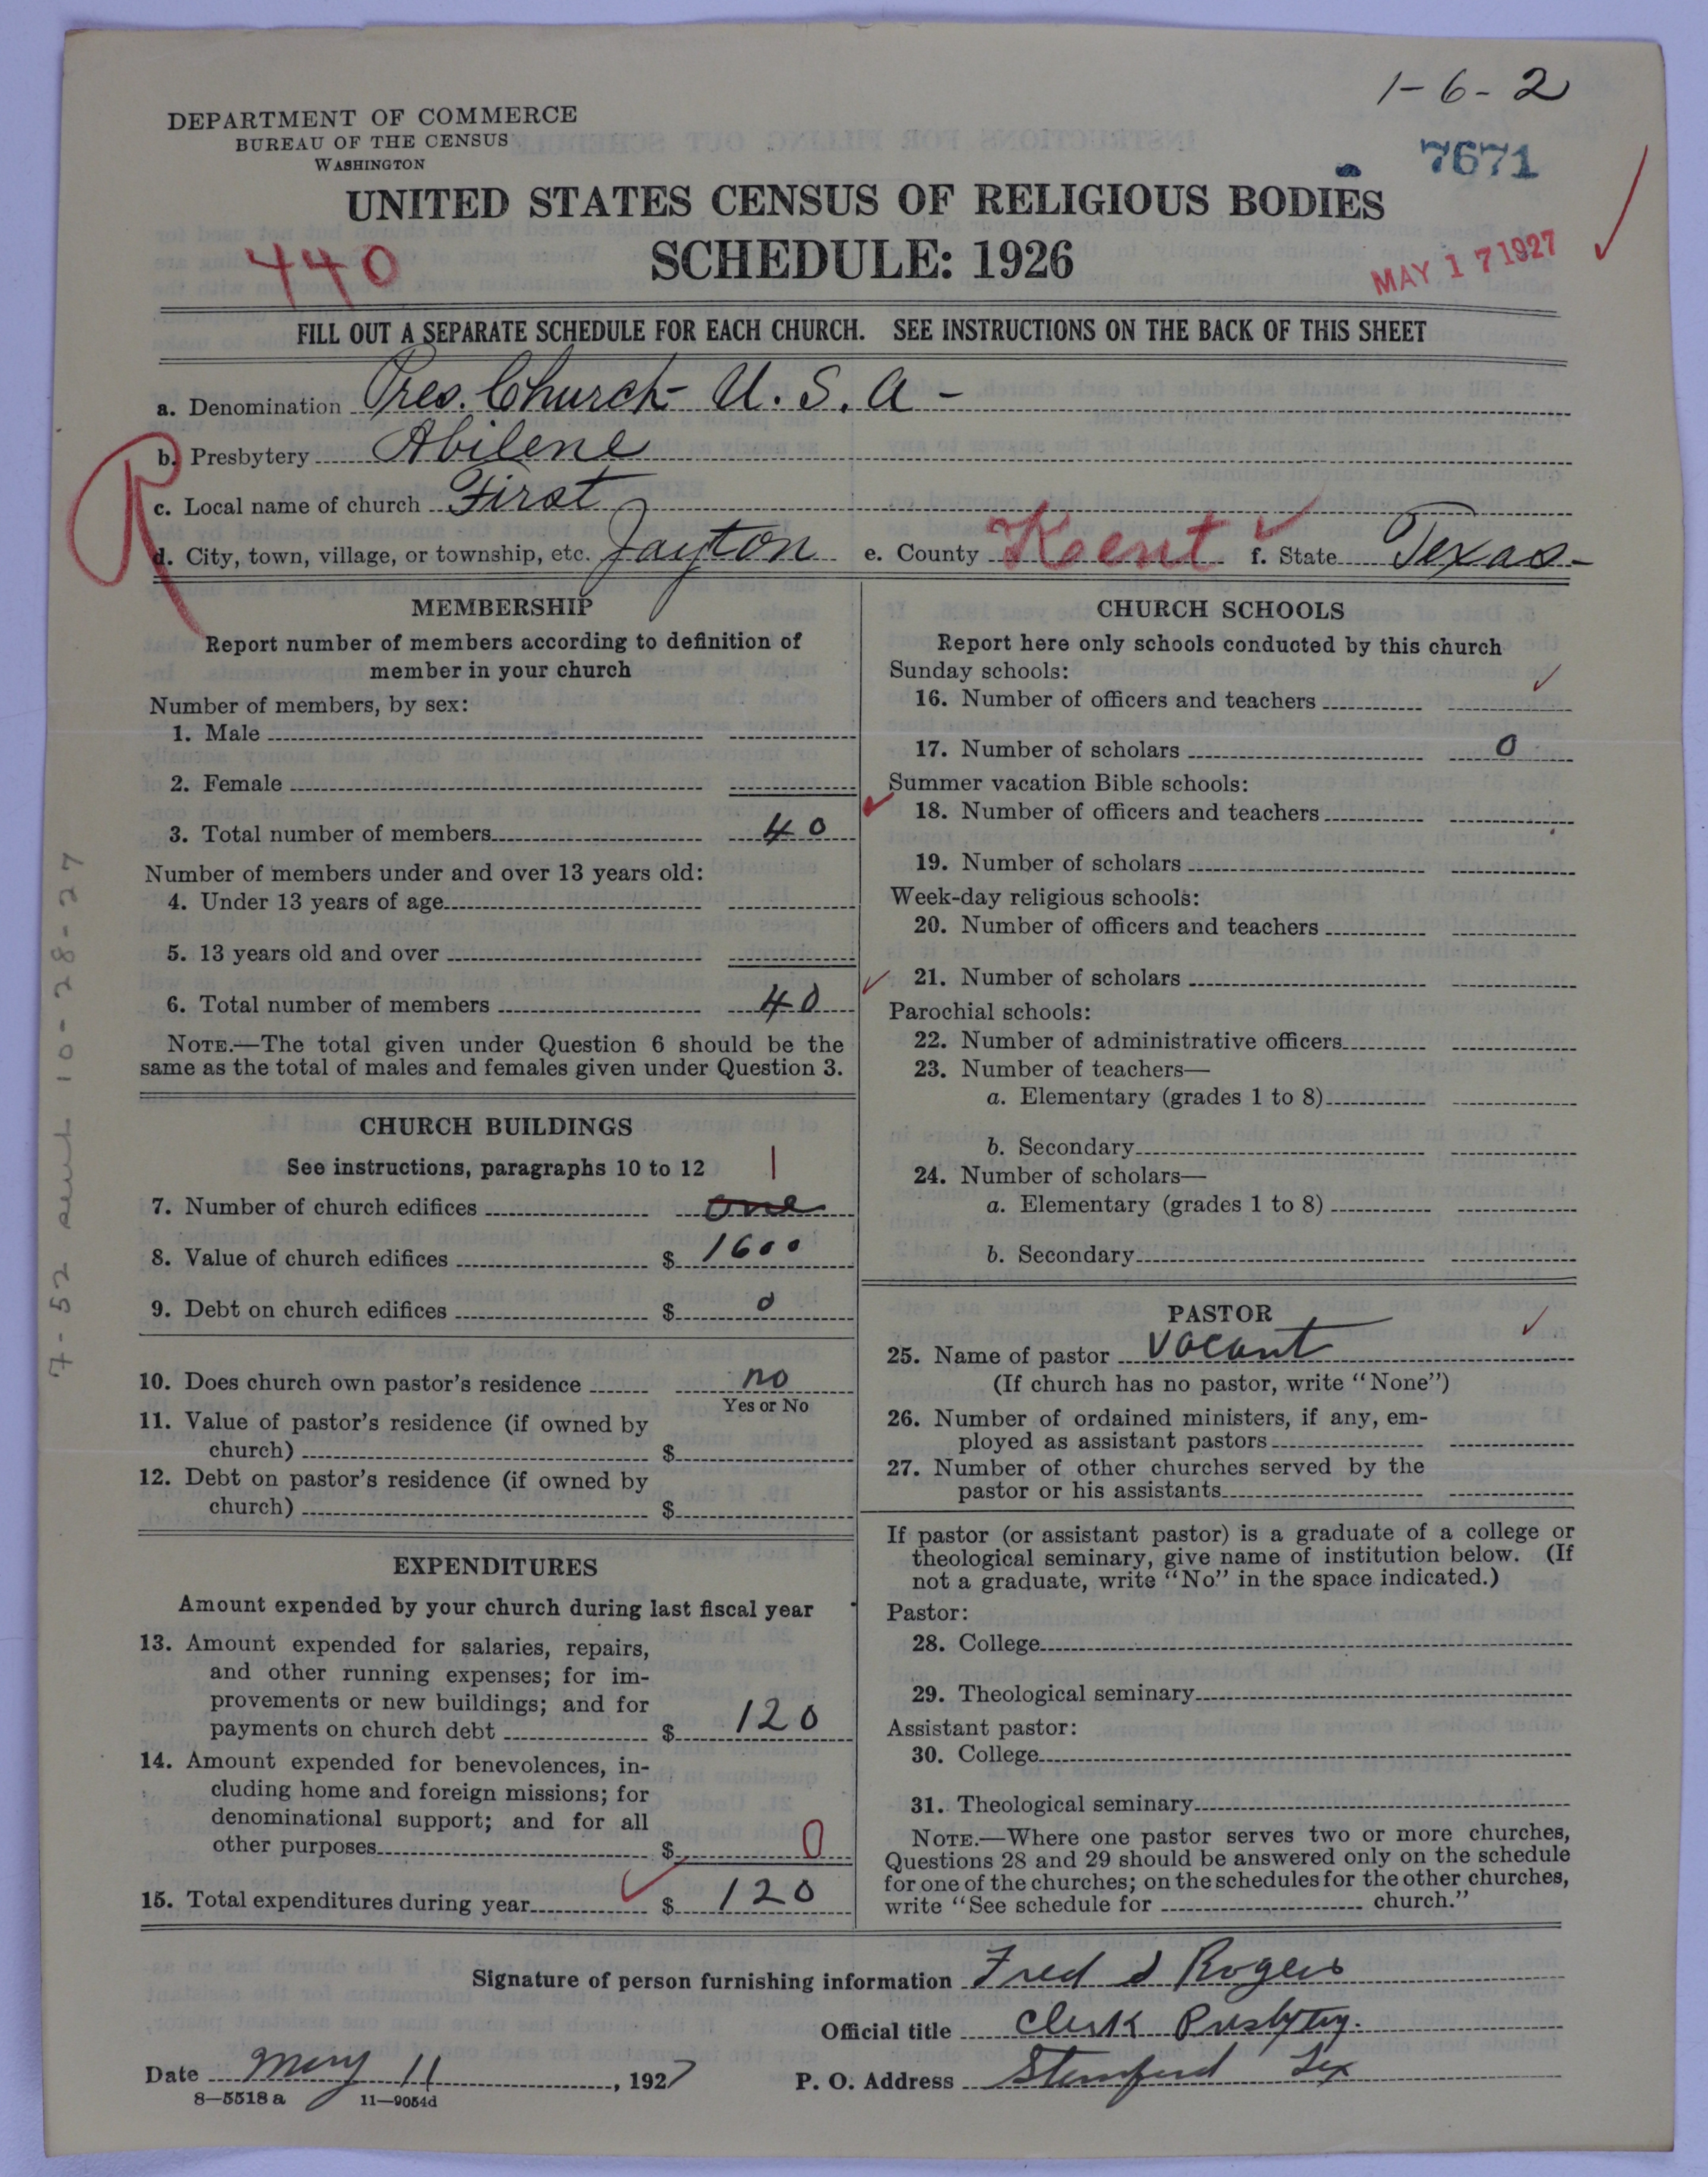 1-6-2
DEPARTMENT OF COMMERCE
BUREAU OF THE CENSUS
WASHINGTON
7671
UNITED STATES CENSUS OF RELIGIOUS BODIES
440
SCHEDULE: 1926
MAY 17 1927
FILL OUT A SEPARATE SCHEDULE FOR EACH CHURCH. SEE INSTRUCTIONS ON THE BACK OF THIS SHEET
a. Denomination Pres. Church U. S. A -
b. Presbytery Abilene
R
c. Local name of church First
d. City, town, village, or township, etc. Jayton e. County Kent f. State Texas
MEMBERSHIP
Report number of members according to definition of
member in your church
Number of members, by sex:
1. Male
2. Female
3. Total number of members 40
Number of members under and over 13 years old:
4. Under 13 years of age
5. 13 years old and over
6. Total number of members 40
NOTE.—The total given under Question 6 should be the
same as the total of males and females given under Question 3.
CHURCH BUILDINGS
See instructions, paragraphs 10 to 12 1
7. Number of church edifices one
8. Value of church edifices $ 1600
9. Debt on church edifices $ 0
10. Does church own pastor's residence no
Yes or No
11. Value of pastor's residence (if owned by
church) $
12. Debt on pastor's residence (if owned by
church) $
EXPENDITURES
Amount expended by your church during last fiscal year
13. Amount expended for salaries, repairs,
and other running expenses; for im-
provements or new buildings; and for
payments on church debt $ 120
14. Amount expended for benevolences, in-
cluding home and foreign missions; for
denominational support; and for all
other purposes $ 0
15. Total expenditures during year $ 120
CHURCH SCHOOLS
Report here only schools conducted by this church
Sunday schools:
16. Number of officers and teachers
17. Number of scholars 0
Summer vacation Bible schools:
18. Number of officers and teachers
19. Number of scholars
Week-day religious schools:
20. Number of officers and teachers
21. Number of scholars
Parochial schools:
22. Number of administrative officers
23. Number of teachers—
a. Elementary (grades 1 to 8)
b. Secondary
24. Number of scholars—
a. Elementary (grades 1 to 8)
b. Secondary
PASTOR
25. Name of pastor Vacant
(If church has no pastor, write "None")
26. Number of ordained ministers, if any, em-
ployed as assistant pastors
27. Number of other churches served by the
pastor or his assistants
If pastor (or assistant pastor) is a graduate of a college or
theological seminary, give name of institution below. (If
not a graduate, write "No" in the space indicated.)
Pastor:
28. College
29. Theological seminary
Assistant pastor:
30. College
31. Theological seminary
NOTE.—Where one pastor serves two or more churches,
Questions 28 and 29 should be answered only on the schedule
for one of the churches; on the schedules for the other churches,
write "See schedule for church."
Signature of person furnishing information Fred S Rogers
Official title Clerk Presbytery.
Date May 11, 1927 P. O. Address Stamford Tex
8—5518 a 11—9054d
7-52 sent 10-28-27